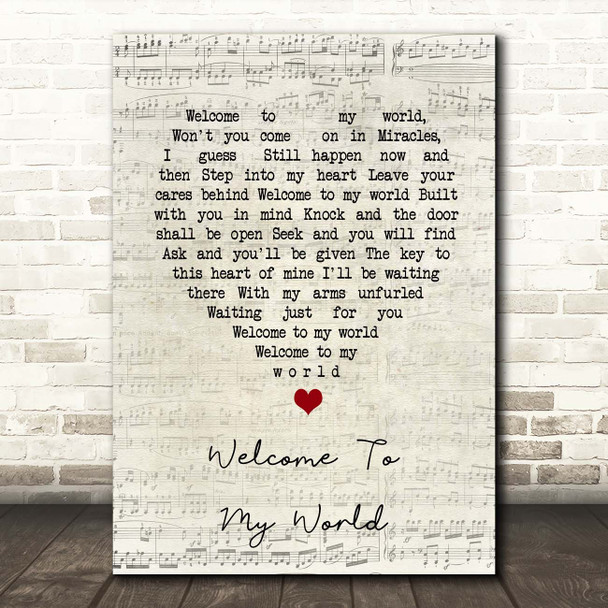 Welcome to my world,
Won't you come on in Miracles,
I guess Still happen now and
then Step into my heart Leave your
cares behind Welcome to my world Built
with you in mind Knock and the door
shall be open Seek and you will find
Ask and you'll be given The key to
this heart of mine I'll be waiting
there With my arms unfurled
Waiting just for you
Welcome to my world
Welcome to my
world
Welcome To
My World